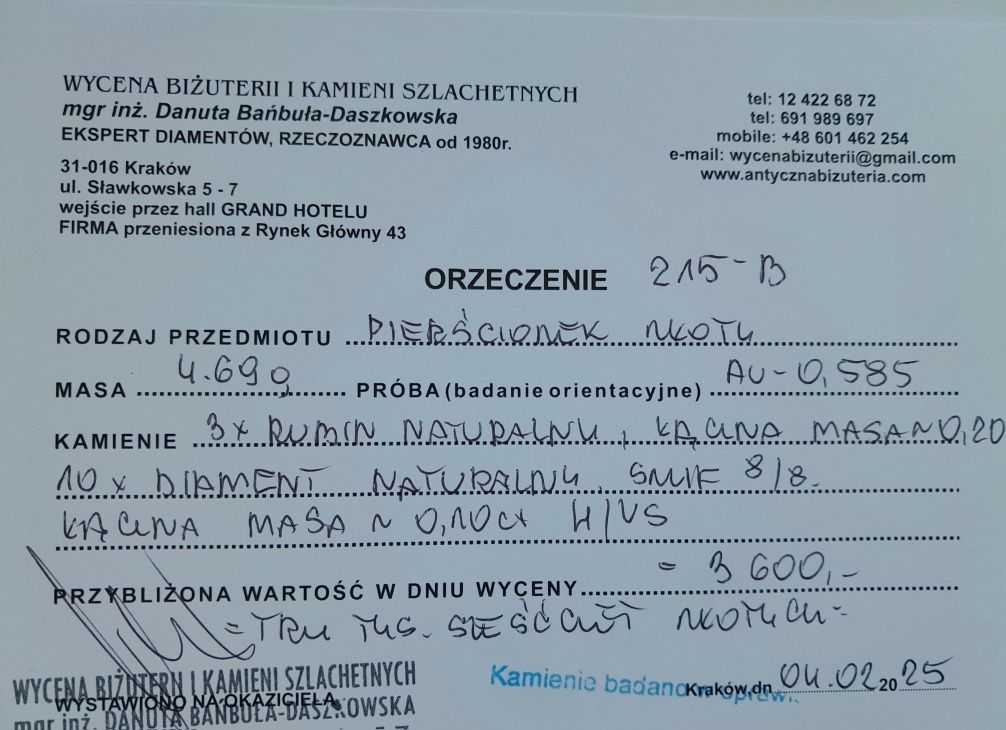 WYCENA BIŻUTERII I KAMIENI SZLACHETNYCH
mgr inż. Danuta Bańbuła-Daszkowska
EKSPERT DIAMENTÓW, RZECZOZNAWCA od 1980r.
31-016 Kraków
ul. Sławkowska 5 - 7
wejście przez hall GRAND HOTELU
FIRMA przeniesiona z Rynek Główny 43
tel: 12 422 68 72
tel: 691 989 697
mobile: +48 601 462 254
e-mail: wycenabizuterii@gmail.com
www.antycznabizuteria.com
ORZECZENIE 215-B
RODZAJ PRZEDMIOTU PIERŚCIONEK ZŁOTY
MASA 4.69g PRÓBA (badanie orientacyjne) AU-0,585
KAMIENIE 3x RUBIN NATURALNY, ŁĄCZNA MASA ~0,20
10x DIAMENT NATURALNY, SZLIF 8/8.
ŁĄCZNA MASA ~ 0,10ct H/VS
PRZYBLIŻONA WARTOŚĆ W DNIU WYCENY = 3 600,-
= TRZY TYS. SZEŚĆSET ZŁOTYCH -
WYCENA BIŻUTERII I KAMIENI SZLACHETNYCH
WYSTAWIONO NA OKAZICIELA
mgr inż. DANUTA BAŃBUŁA-DASZKOWSKA
Kamienie badano w opraw.
Kraków, dn 04.02.2025